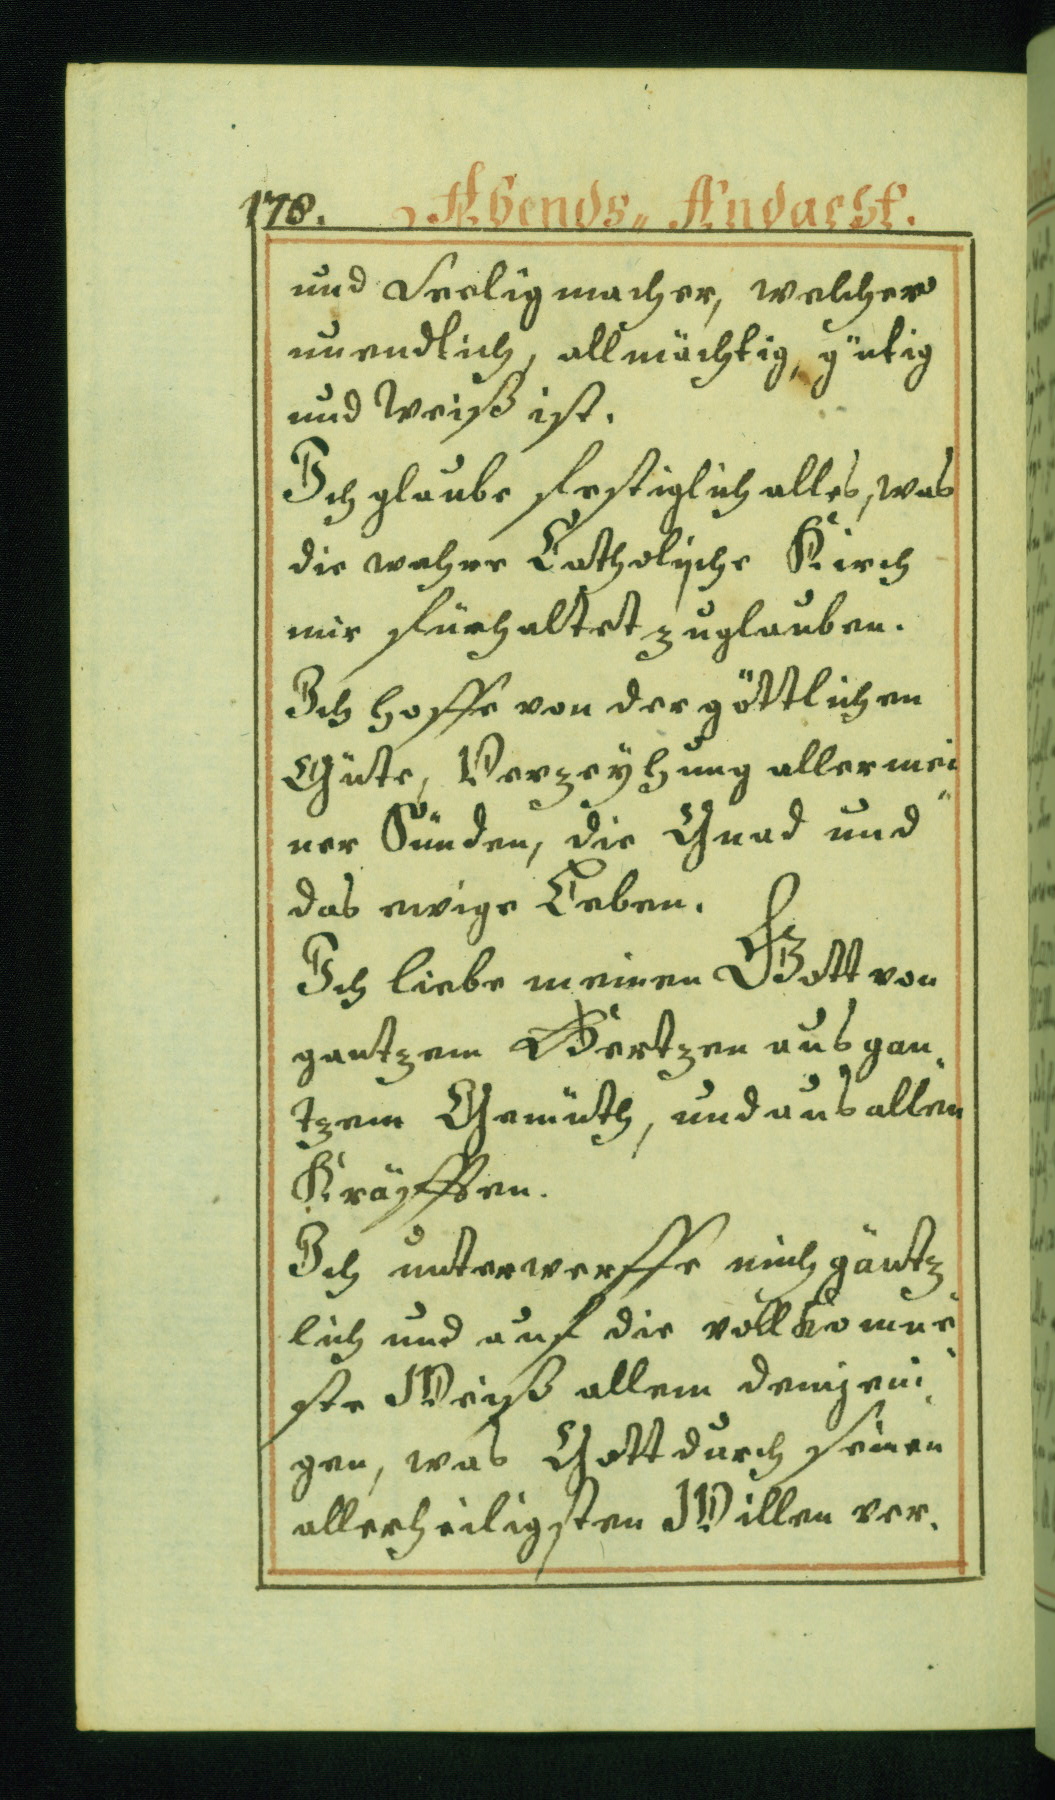 178. Abends„ Andacht.
und Seeligmacher, welcher
unendlich, allmächtig, gütig
und Weiß ist.
Ich glaube festiglich alles, was
die wahre Catholische Kirch
mir fürhaltet zuglauben.
Ich hoffe von der göttlichen
Güte, Verzeÿhung aller mei„
ner Sünden, die Gnad und
das ewige Leben.
Ich liebe meinen Gott von
gantzem Hertzen aus gan„
tzem Gemüth, und aus allen
Kräfften.
Ich unterwerffe mich gäntz
lich und auf die vollkomne„
ste Weiß allem demjeni„
gen, was Gott durch seinen
allerheiligsten Willen ver„